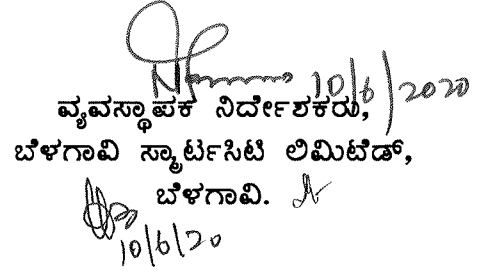 10/6/2020
ವ್ಯವಸ್ಥಾಪಕ ನಿರ್ದೇಶಕರು,
ಬೆಳಗಾವಿ ಸ್ಮಾರ್ಟಸಿಟಿ ಲಿಮಿಟೆಡ್,
ಬೆಳಗಾವಿ.
10/6/20